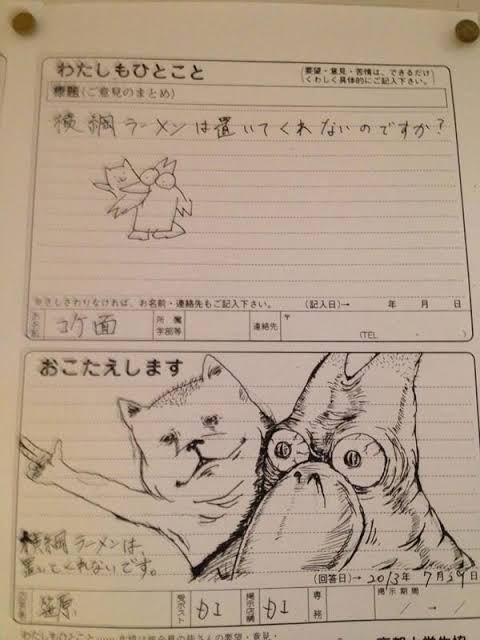 わたしもひとこと
要望・意見・苦情は、できるだけ
くわしく具体的にご記入下さい。
標題(ご意見のまとめ)
横綱ラーメンは置いてくれないのですか?
おさしさわりなければ、お名前・連絡先もご記入下さい。 (記入日)→ 年 月 日
お名前 コケ面 所属学部等 連絡先 〒
(TEL - )
おこたえします
横綱ラーメンは、
置いてくれないです。
(回答日)→ 2013年 7月29日
笹原 掲示店舗 専務 掲示期間
/ ~ /
わたしもひとこと